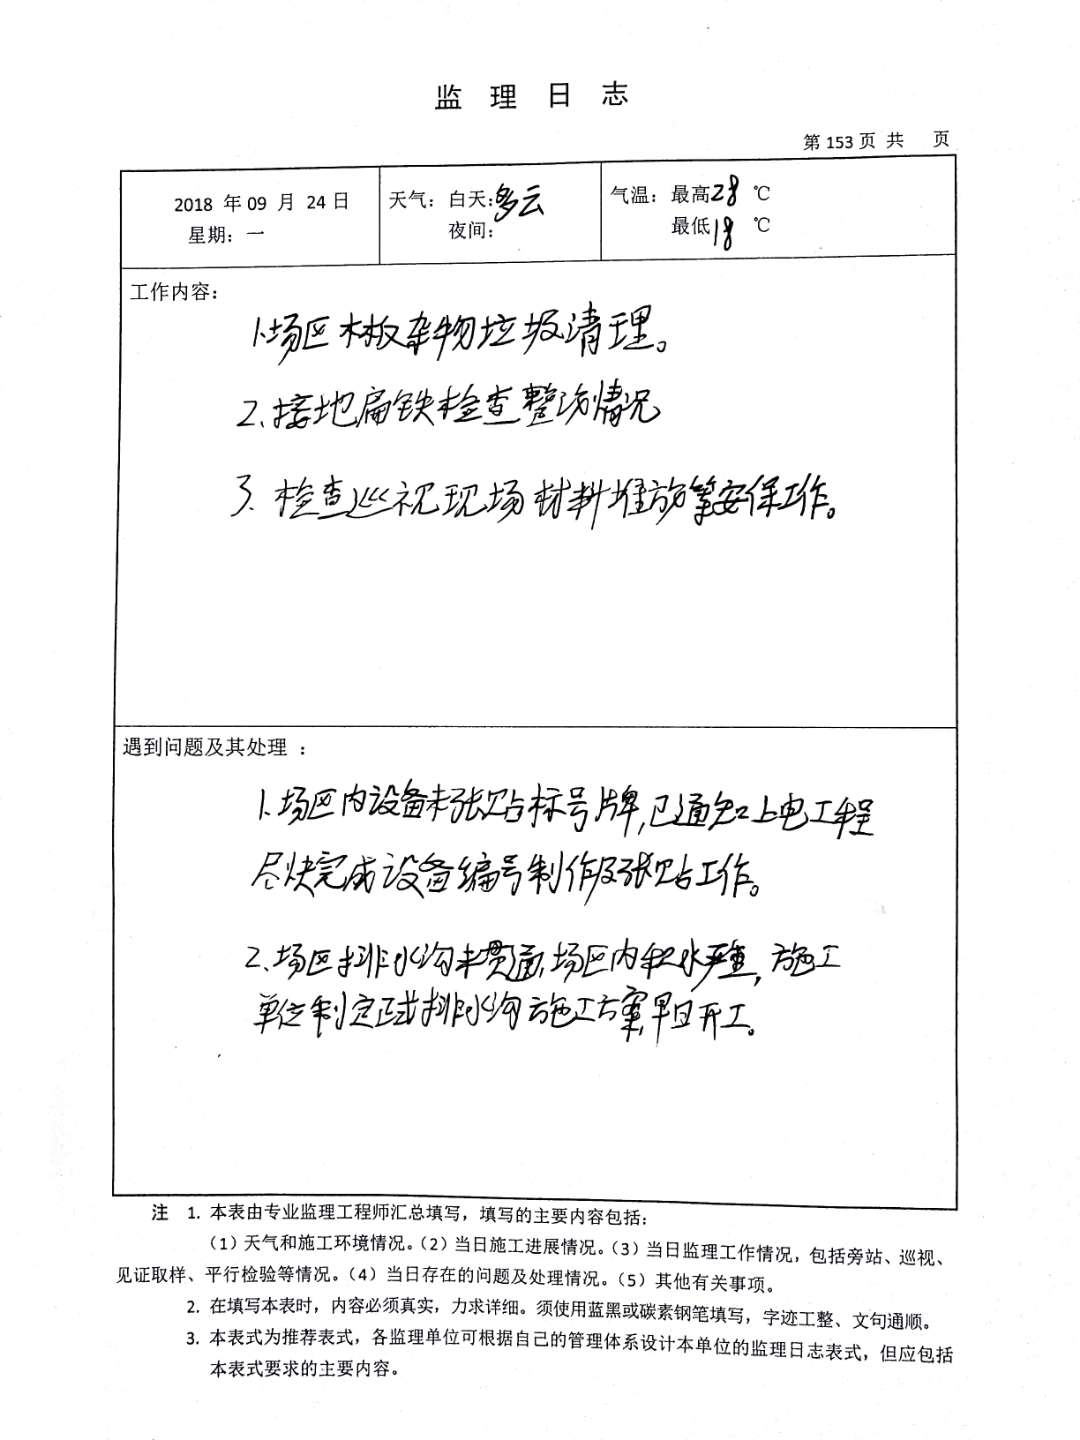 监理日志
第 153 页 共 页
2018 年 09 月 24 日
星期：一
天气：白天:多云
夜间：
气温：最高28 ℃
最低18 ℃
工作内容：
1.场区木板杂物垃圾清理。
2.接地扁铁检查整改情况
3.检查巡视现场材料堆放等安保工作。
遇到问题及其处理 ：
1.场区内设备未张贴标号牌,已通知上电工程
尽快完成设备编号制作及张贴工作。
2.场区排水沟未贯通,场区内积水严重,施工
单位制定正式排水沟施工方案,早日开工。
注 1. 本表由专业监理工程师汇总填写，填写的主要内容包括：
（1）天气和施工环境情况。（2）当日施工进展情况。（3）当日监理工作情况，包括旁站、巡视、
见证取样、平行检验等情况。（4）当日存在的问题及处理情况。（5）其他有关事项。
2. 在填写本表时，内容必须真实，力求详细。须使用蓝黑或碳素钢笔填写，字迹工整、文句通顺。
3. 本表式为推荐表式，各监理单位可根据自己的管理体系设计本单位的监理日志表式，但应包括
本表式要求的主要内容。